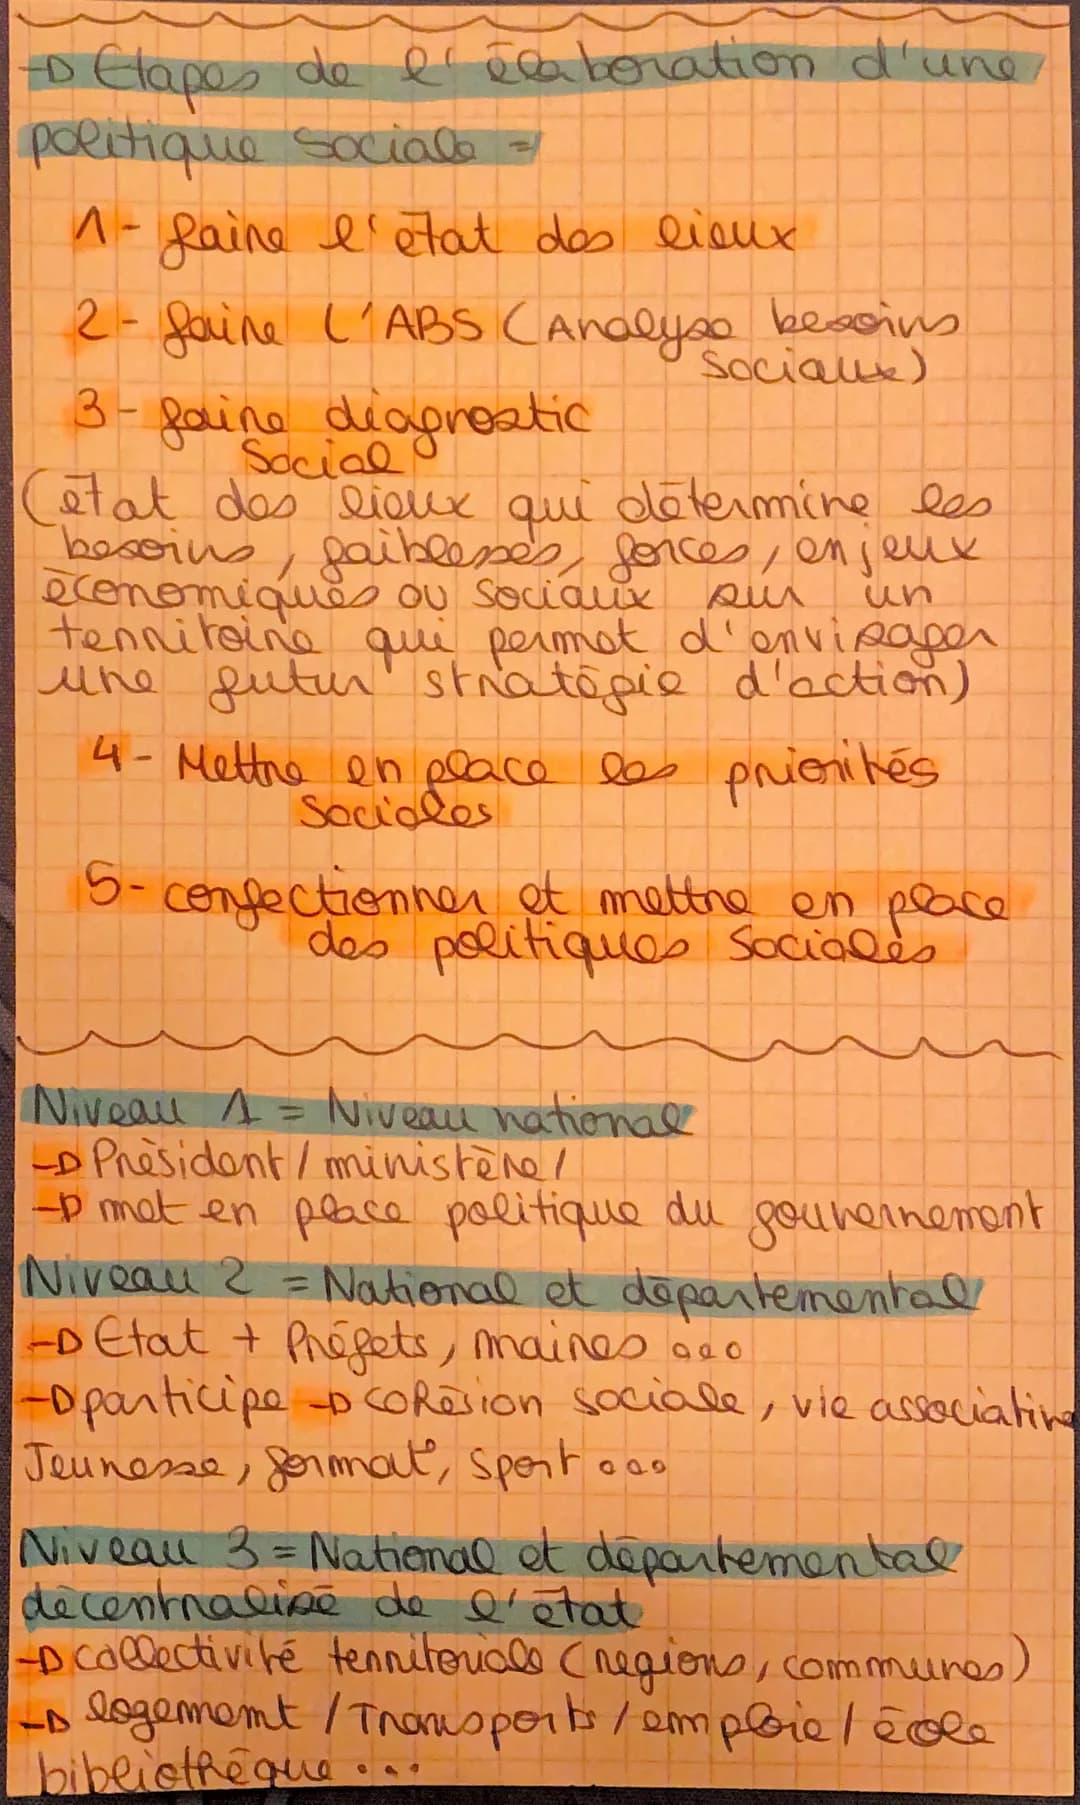 → Etapes de l'élaboration d'une
politique sociale =
1 - faire l'état des lieux
2 - faire L'ABS (Analyse besoins
sociaux)
3 - faire diagnostic
Social
(état des lieux qui détermine les
besoins, faiblesses, forces, enjeux
économiques ou sociaux sur un
territoire qui permet d'envisager
une futur stratégie d'action)
4 - Mettre en place les priorités
Sociales
5 - confectionner et mettre en place
des politiques Sociales
Niveau 1 = Niveau national
→ Président / ministère /
→ met en place politique du gouvernement
Niveau 2 = National et départemental
→ Etat + Préfets, maires ...
→ participe → cohésion sociale, vie associative
Jeunesse, format°, sport ...
Niveau 3 = National et départemental
décentralisé de l'état
→ collectivité territoriale (régions, communes)
→ logement / Transports / emploie / école
bibliothéque ...